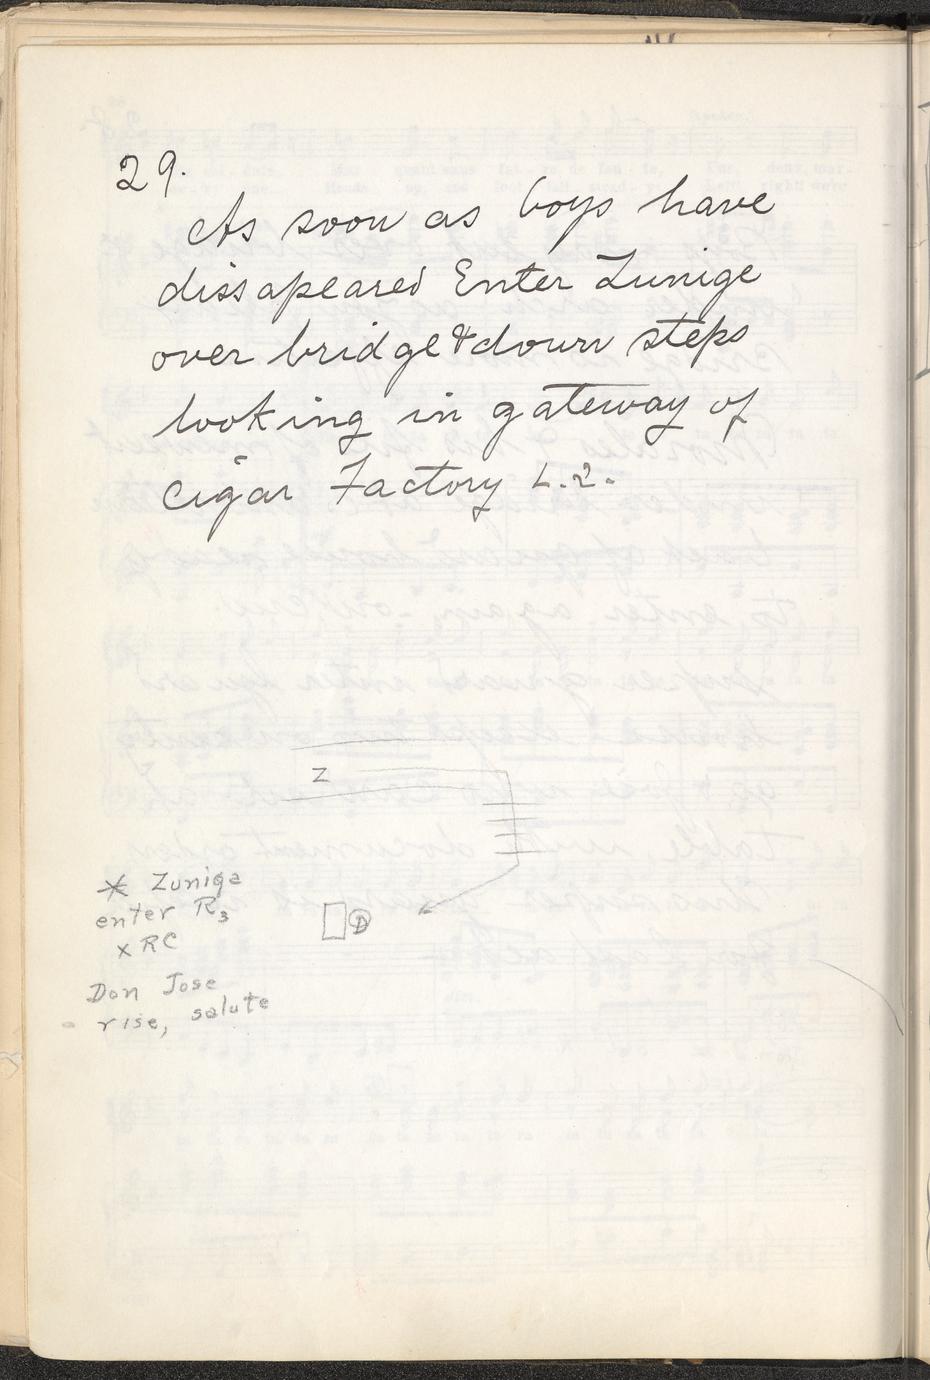 29.
As soon as boys have
dissapeared Enter Zunige
over bridge & down steps
looking in gateway of
Cigar Factory L.2.
Z
* Zuniga
enter R3
x RC
D
Don Jose
rise, salute